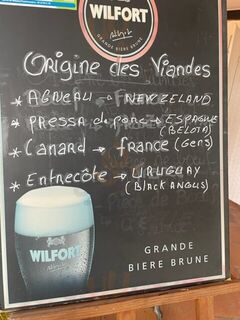 WILFORT
GRANDE BIÈRE BRUNE
Origine des Viandes
* AGNEAU → NEW ZELAND
* PRESSA de porc → ESPAGNE
(BELOTA)
* CANARD → FRANCE (GERS)
* Entrecôte → URUGUAY
(Black ANGUS)
WILFORT
GRANDE
BIÈRE BRUNE